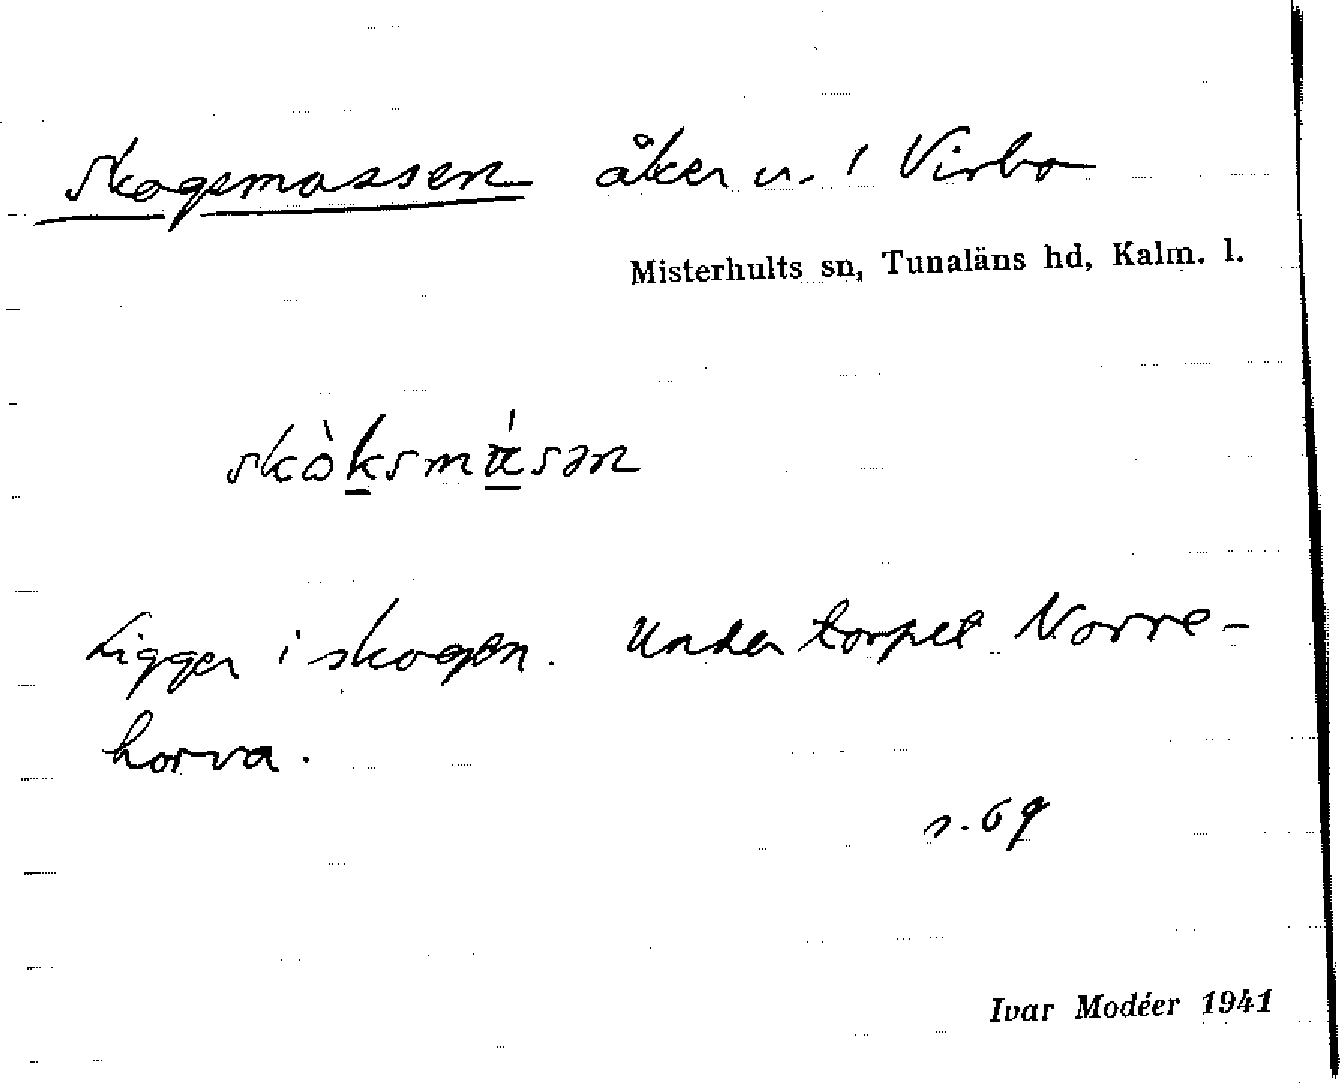 Skogsmossen åker u. 1 Virbo
Misterhults sn, Tunaläns hd, Kalm. l.
Ligger i skogen. Under torpet Norre-
horva.
s. 69
Ivar Modéer 1941